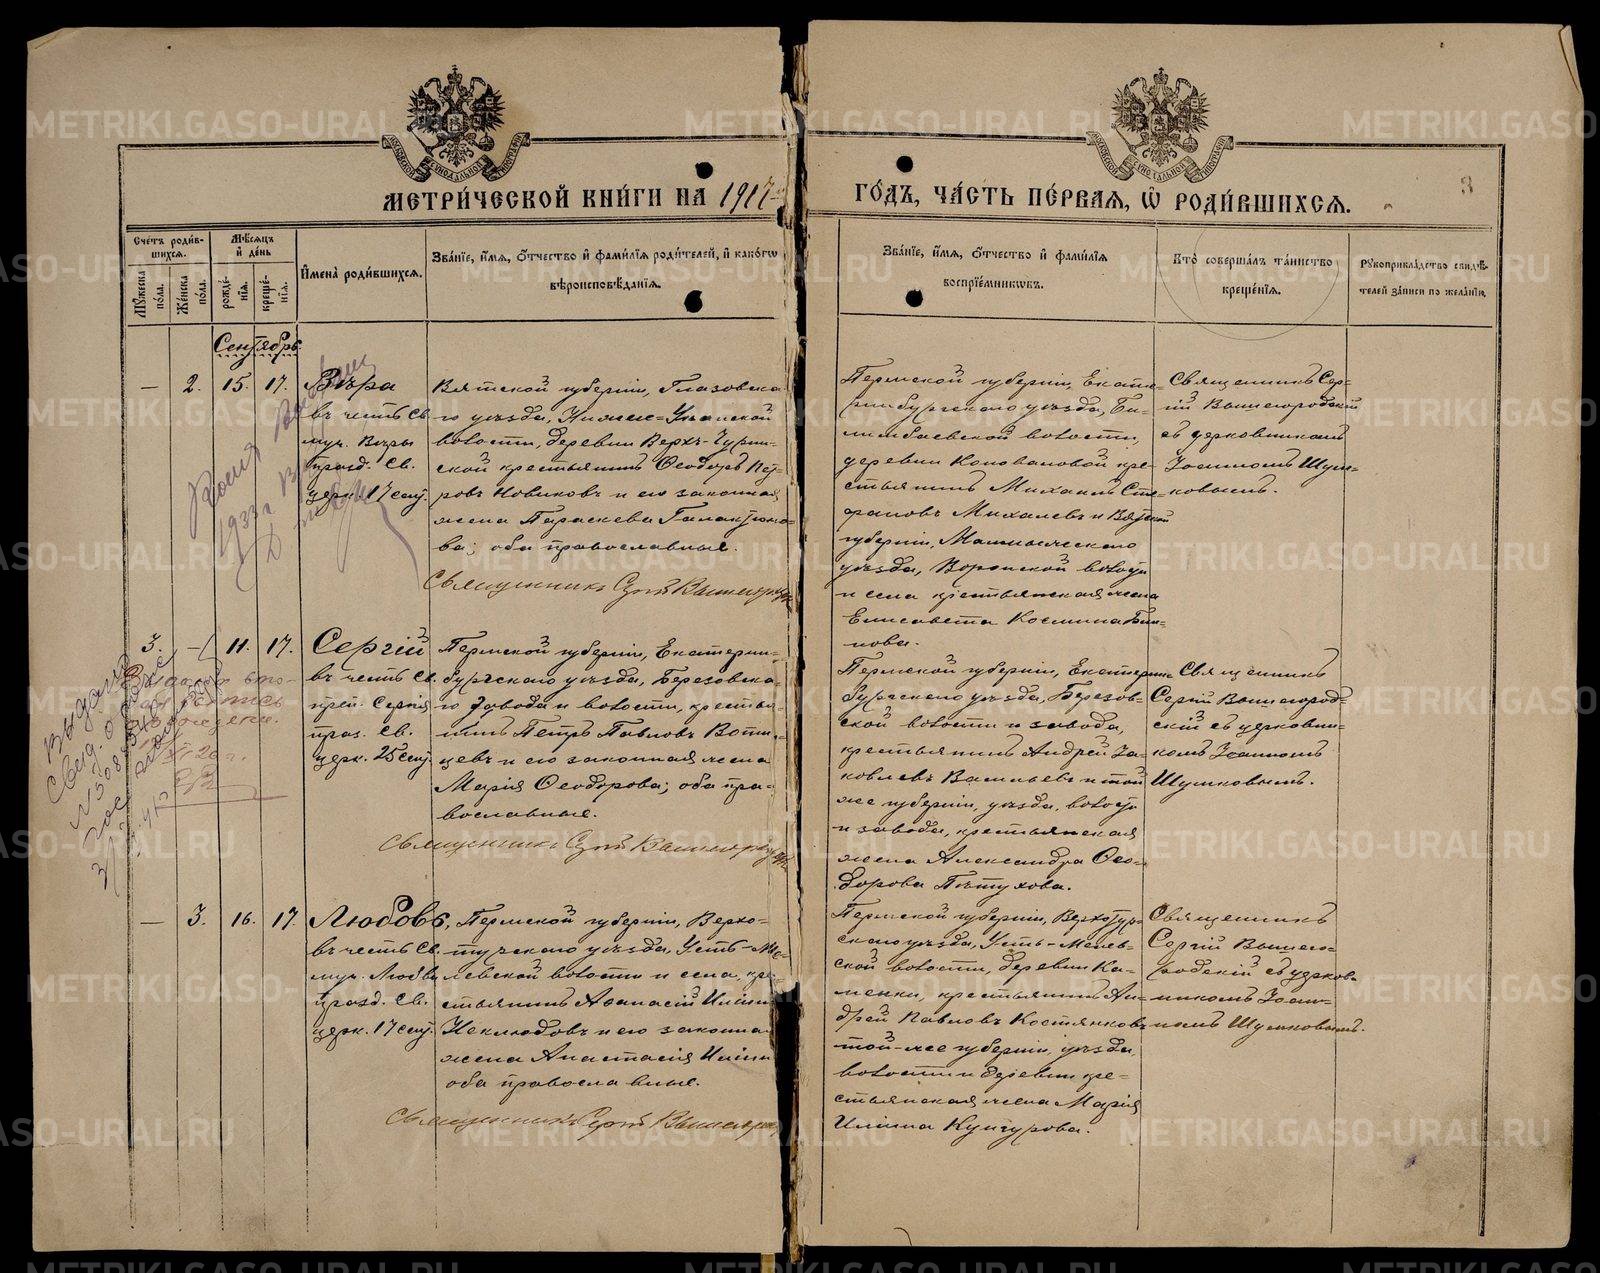 МЕТРИ́ЧЕСКОЙ КНИ́ГИ НА 1917
ГО́ДЪ, ЧА́СТЬ ПЕ́РВАЯ, Ѿ РОДИ́ВШИХСЯ.
3
Сче́тъ роди́в-
шихся.
Му́жеска по́ла.
Же́нска по́ла.
Мѣ́сяцъ и де́нь
рожде́-
нія.
креще́-
нія.
Имена̀ роди́вшихся.
Зва́ніе, и́мя, ѻ́тчество и фами́лія роди́телей, и како́гѡ
вѣроисповѣ́данія.
Зва́ніе, и́мя, ѻ́тчество и фами́лія
воспріе́мникѡвъ.
Кто̀ соверша́лъ та́инство
креще́нія.
Рукоприкла́дство свидѣ́-
телей за́писи по жела́нію.
Сентябрь.
— 2. 15. 17.
Вѣра
въ честь Св.
муч. Вѣры
празд. Св.
церк. 17 сент.
Вятской губерніи, Глазовска-
го уѣзда, Нижне-Уканской
волости, деревни Верхъ-
ской крестьянинъ Ѳеодоръ Пет-
ровъ Новиковъ и его законная
жена Параскева Галактіоно-
ва; оба православные.
Священникъ Сергій Вышегородскій
Пермской губерніи, Екате-
ринбургскаго уѣзда, Би-
лимбаевской волости,
деревни Коноваловой кре-
стьянинъ Михаилъ Сте-
фановъ Михалевъ и Вятской
губерніи, Малмыжскаго
уѣзда, волости
и села крестьянская жена
Елисавета Космина Бли-
нова.
Священникъ Сер-
гій Вышегородскій
съ церковникомъ
Іоанномъ Шум-
ковымъ.
3. — 11. 17.
Сергій
въ честь Св.
преп. Сергія
праз. Св.
церк. 25 сент.
Пермской губерніи, Екатерин-
бургскаго уѣзда, Березовска-
го завода и волости, крестья-
нинъ Петръ Павловъ
и его законная жена
Марія Ѳеодорова; оба пра-
вославные.
Священникъ Сергій Вышегородскій
Пермской губерніи, Екатерин-
бургскаго уѣзда, Березов-
ской волости и завода,
крестьянинъ Андрей Іа-
ковлевъ Васильевъ и той
же губерніи, уѣзда, волости
и завода, крестьянская
жена Александра Ѳео-
дорова Пѣтухова.
Священникъ
Сергій Вышегород-
скій съ церковни-
комъ Іоанномъ
Шумковымъ.
— 3. 16. 17.
Любовь,
въ честь Св.
муч. Любви
празд. Св.
церк. 17 сент.
Пермской губерніи, Верхо-
турскаго уѣзда,
волости и села, кре-
стьянинъ Аѳанасій Ильинъ
Неклюдовъ и его законная
жена Анастасія Ильина
оба православные.
Священникъ Сергій Вышегородскій
Пермской губерніи, Верхотур-
скаго уѣзда,
волости, деревни Ка-
менки, крестьянинъ Ан-
дрей Павловъ Костянковъ
той-же губерніи, уѣзда,
волости и деревни кре-
стьянская жена Марія
Ильина Кунгурова.
Священникъ
Сергій Вышего-
родскій съ церков-
никомъ Іоан-
номъ Шумковымъ.
METRIKI.GASO-URAL.RU